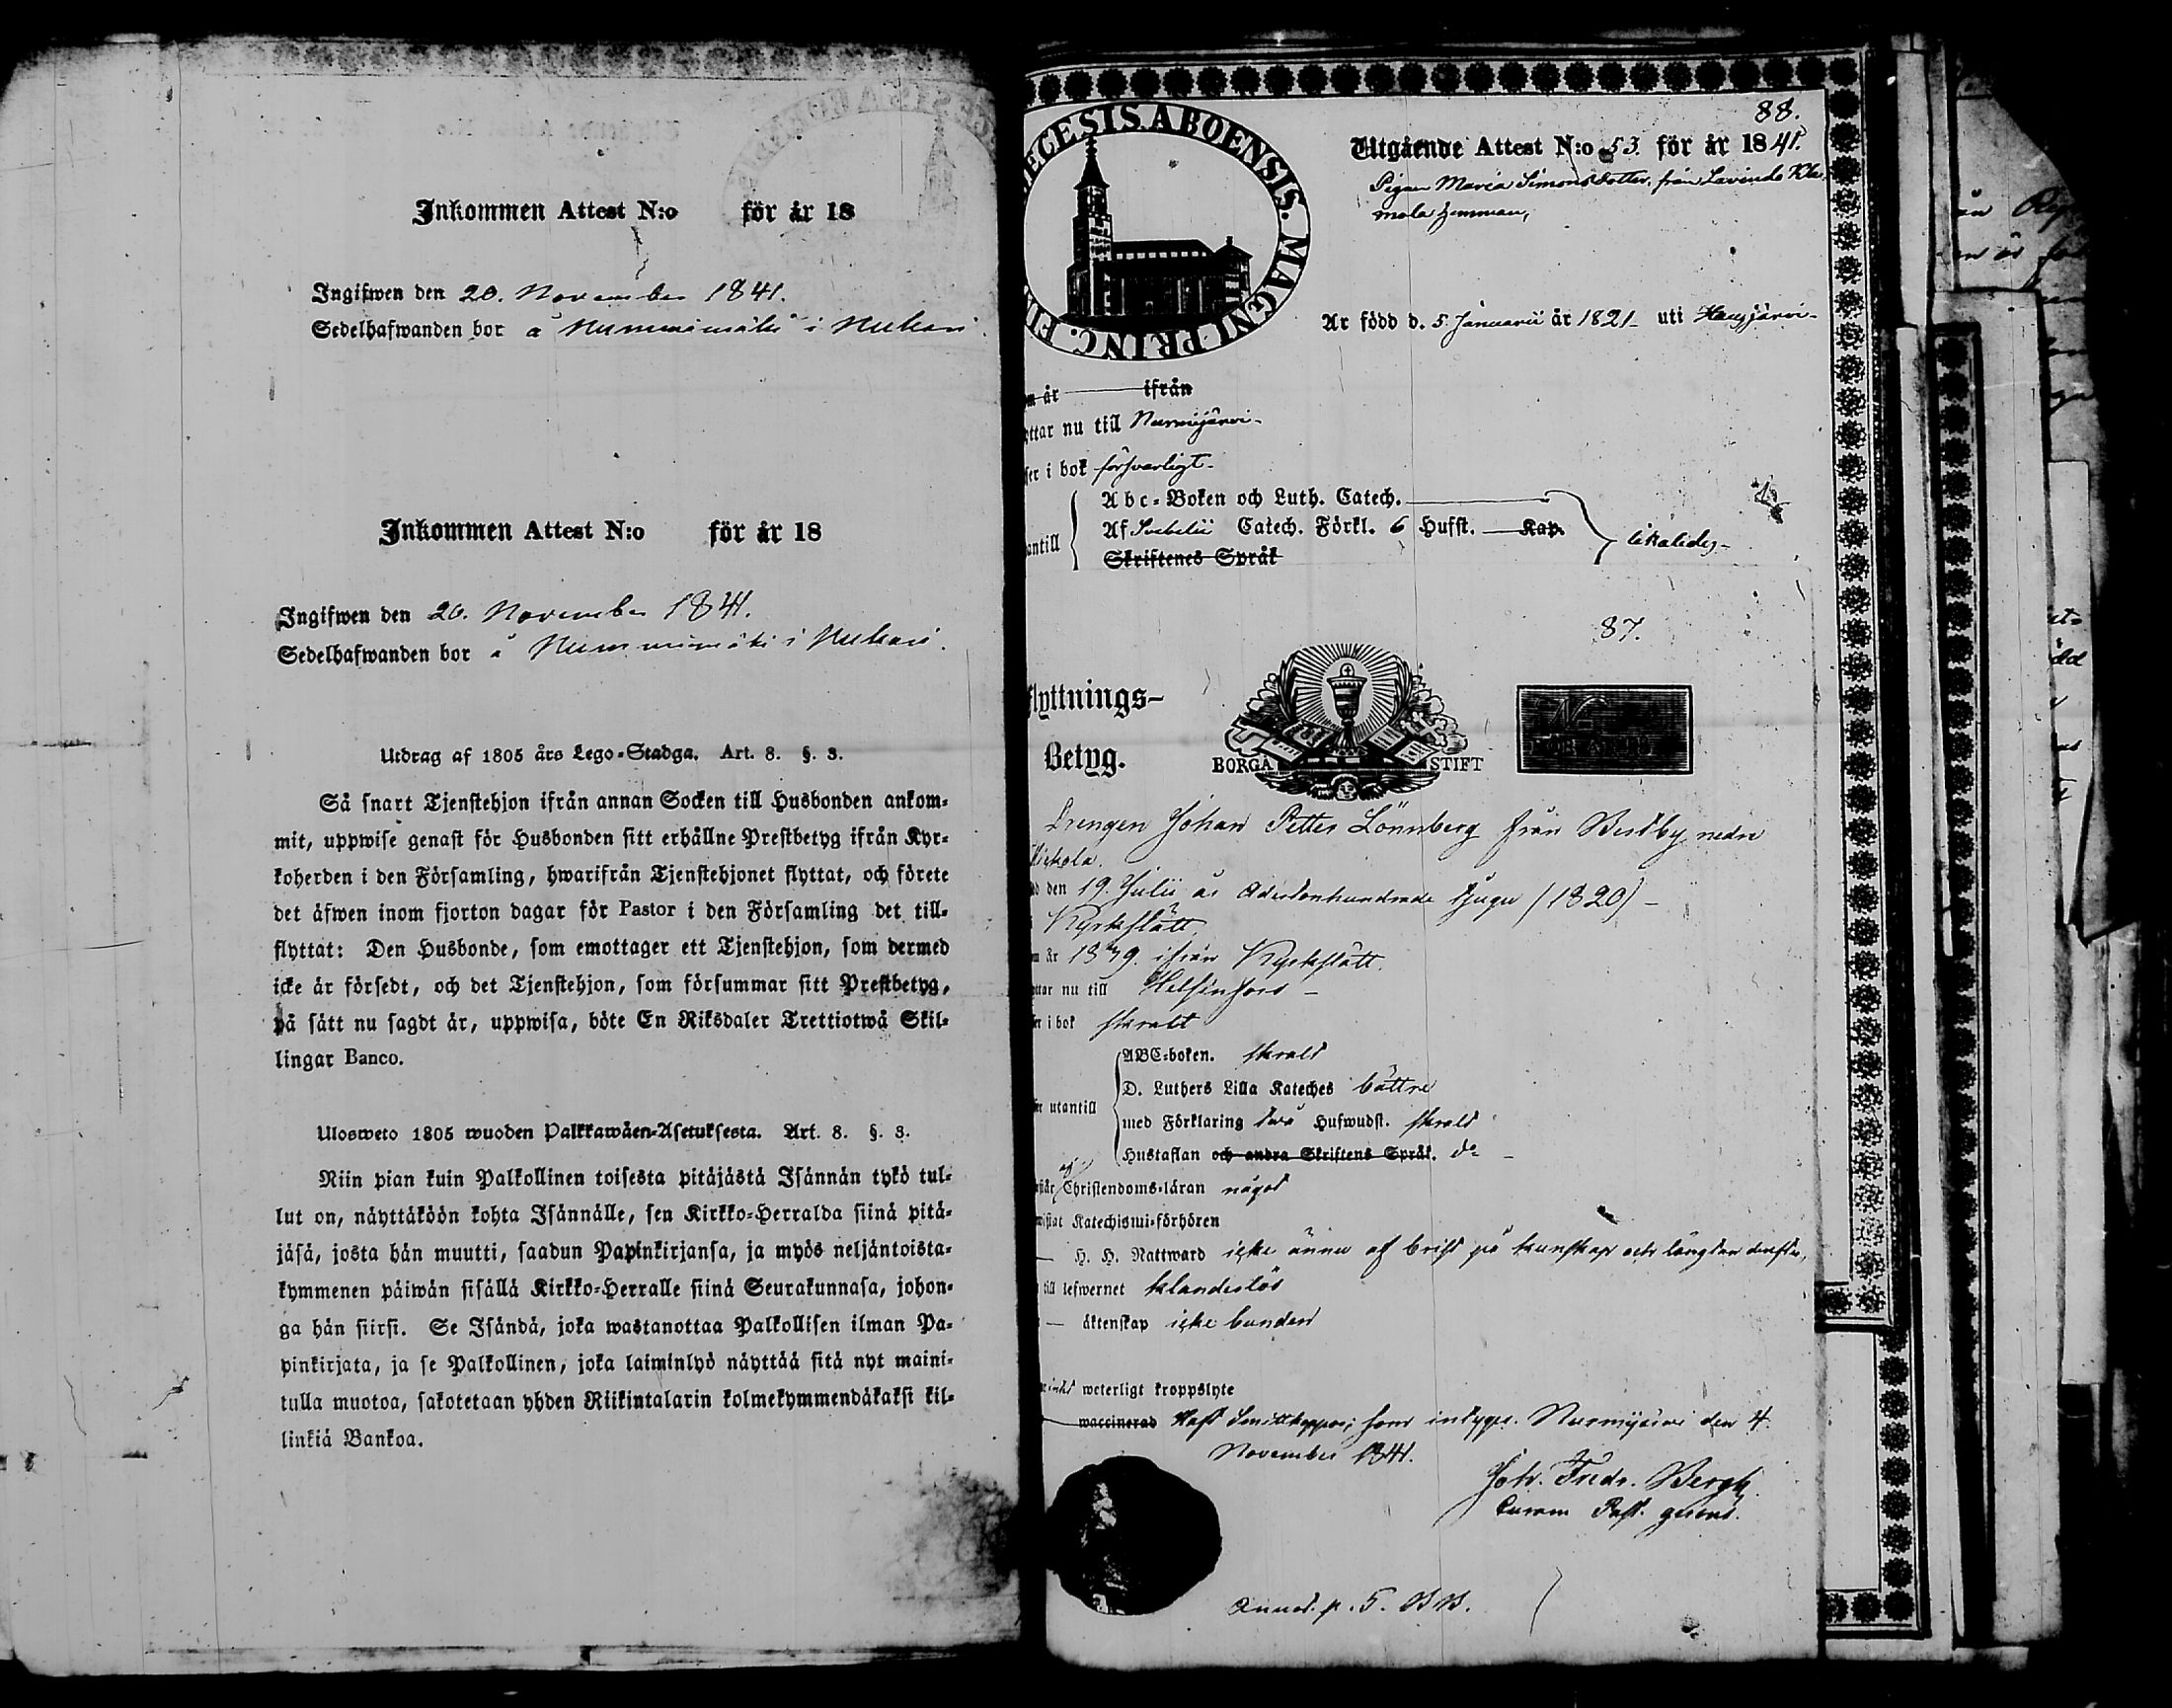 Inkommen Attest N:o för år 18
Ingifwen den 20. November 1841.
Sedelhafwanden bor å Nummimäki i Nukari
Inkommen Attest N:o för år 18
Ingifwen den 20. November 1841.
Sedelhafwanden bor å Nummimäki i Nukari.
Utdrag af 1805 års Lego-Stadga. Art. 8. §. 3.
Så snart Tjenstehjon ifrån annan Socken till Husbonden ankom-
mit, uppwise genast för Husbonden sitt erhållne Prestbetyg ifrån Kyr-
koherden i den Församling, hwarifrån Tjenstehjonet flyttat, och förete
det äfwen inom fjorton dagar för Pastor i den Församling det till-
flyttat: Den Husbonde, som emottager ett Tjenstehjon, som dermed
icke är försedt, och det Tjenstehjon, som försummar sitt Prestbetyg,
på sätt nu sagdt är, uppwisa, böte En Riksdaler Trettiotwå Skil-
lingar Banco.
Ulosweto 1805 wuoden Palkkawäen-Asetuksesta. Art. 8. §. 3.
Niin pian kuin Palkollinen toisesta pitäjästä Isännän tykö tul-
lut on, näyttäköön kohta Isännälle, sen Kirkko-Herralda siinä pitä-
jäsä, josta hän muutti, saadun Papinkirjansa, ja myös neljäntoista-
kymmenen päiwän sisällä Kirkko-Herralle siinä Seurakunnasa, johon-
ga hän siirsi. Se Isändä, joka wastanottaa Palkollisen ilman Pa-
pinkirjata, ja se Palkollinen, joka laiminlyö näyttää sitä nyt maini-
tulla muotoa, sakotetaan yhden Riikintalarin kolmekymmendäkaksi kil-
linkiä Bankoa.
88.
ECESIS ABOENSIS. MAGNI PRINC. FI
Utgående Attest N:o 53. för år 1841.
Pigan Maria Simonsdotter, från
mola hemman,
Är född d. 5 Januarii år 1821 - uti Hausjärvi -
år ifrån
ttar nu till Nurmijärvi -
ser i bok försvarligt -
antill
Abc-Boken och Luth. Catech.
Af Svebelii Catech. Förkl. 6 Hufst. Kap.
Skriftenes Språk
likaledes -
87.
flyttnings-
Betyg.
BORGÅ STIFT
N
FÖR ÅR 18
Drengen Johan Petter Lönnberg från Bertby nedre
d den 19. Julii år Adertonhundrade tjugu (1820) -
Kyrkslätt
år 1839. ifrån Kyrkslätt.
ttar nu till Helsinfors -
er i bok svakt
utantill
ABC-boken. svakt
D. Luthers Lilla Kateches bättre
med Förklaring två Hufwudst. svakt
Hustaflan och andra Skriftens Språk. do -
af Christendoms-läran något
wistat Katechismi-förhören
H. H. Nattward icke ännu af brist på kunskap och
till lefwernet klanderlös
äktenskap icke bunden
weterligt kroppslyte
waccinerad Haft Smittkoppor; som intygar. Nurmijärvi den 4.
November 1841.
Joh. Fredr. Bergh.
Curam Past. gerens.
Annot. p. 5.